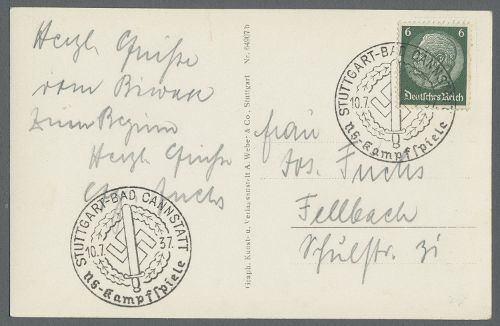 Herzl. Grüße
vom Biwak
zum Beginn
Herzl. Grüße
Fuchs
STUTTGART-BAD CANNSTATT
10.7. 37.
NS-Kampfspiele
Graph. Kunst- u. Verlagsanstalt A. Weber & Co., Stuttgart Nr. 64907 b
6 6
Deutsches Reich
STUTTGART-BAD CANNSTATT
10.7.
NS-Kampfspiele
Frau
Jos. Fuchs
Fellbach
Schulstr.